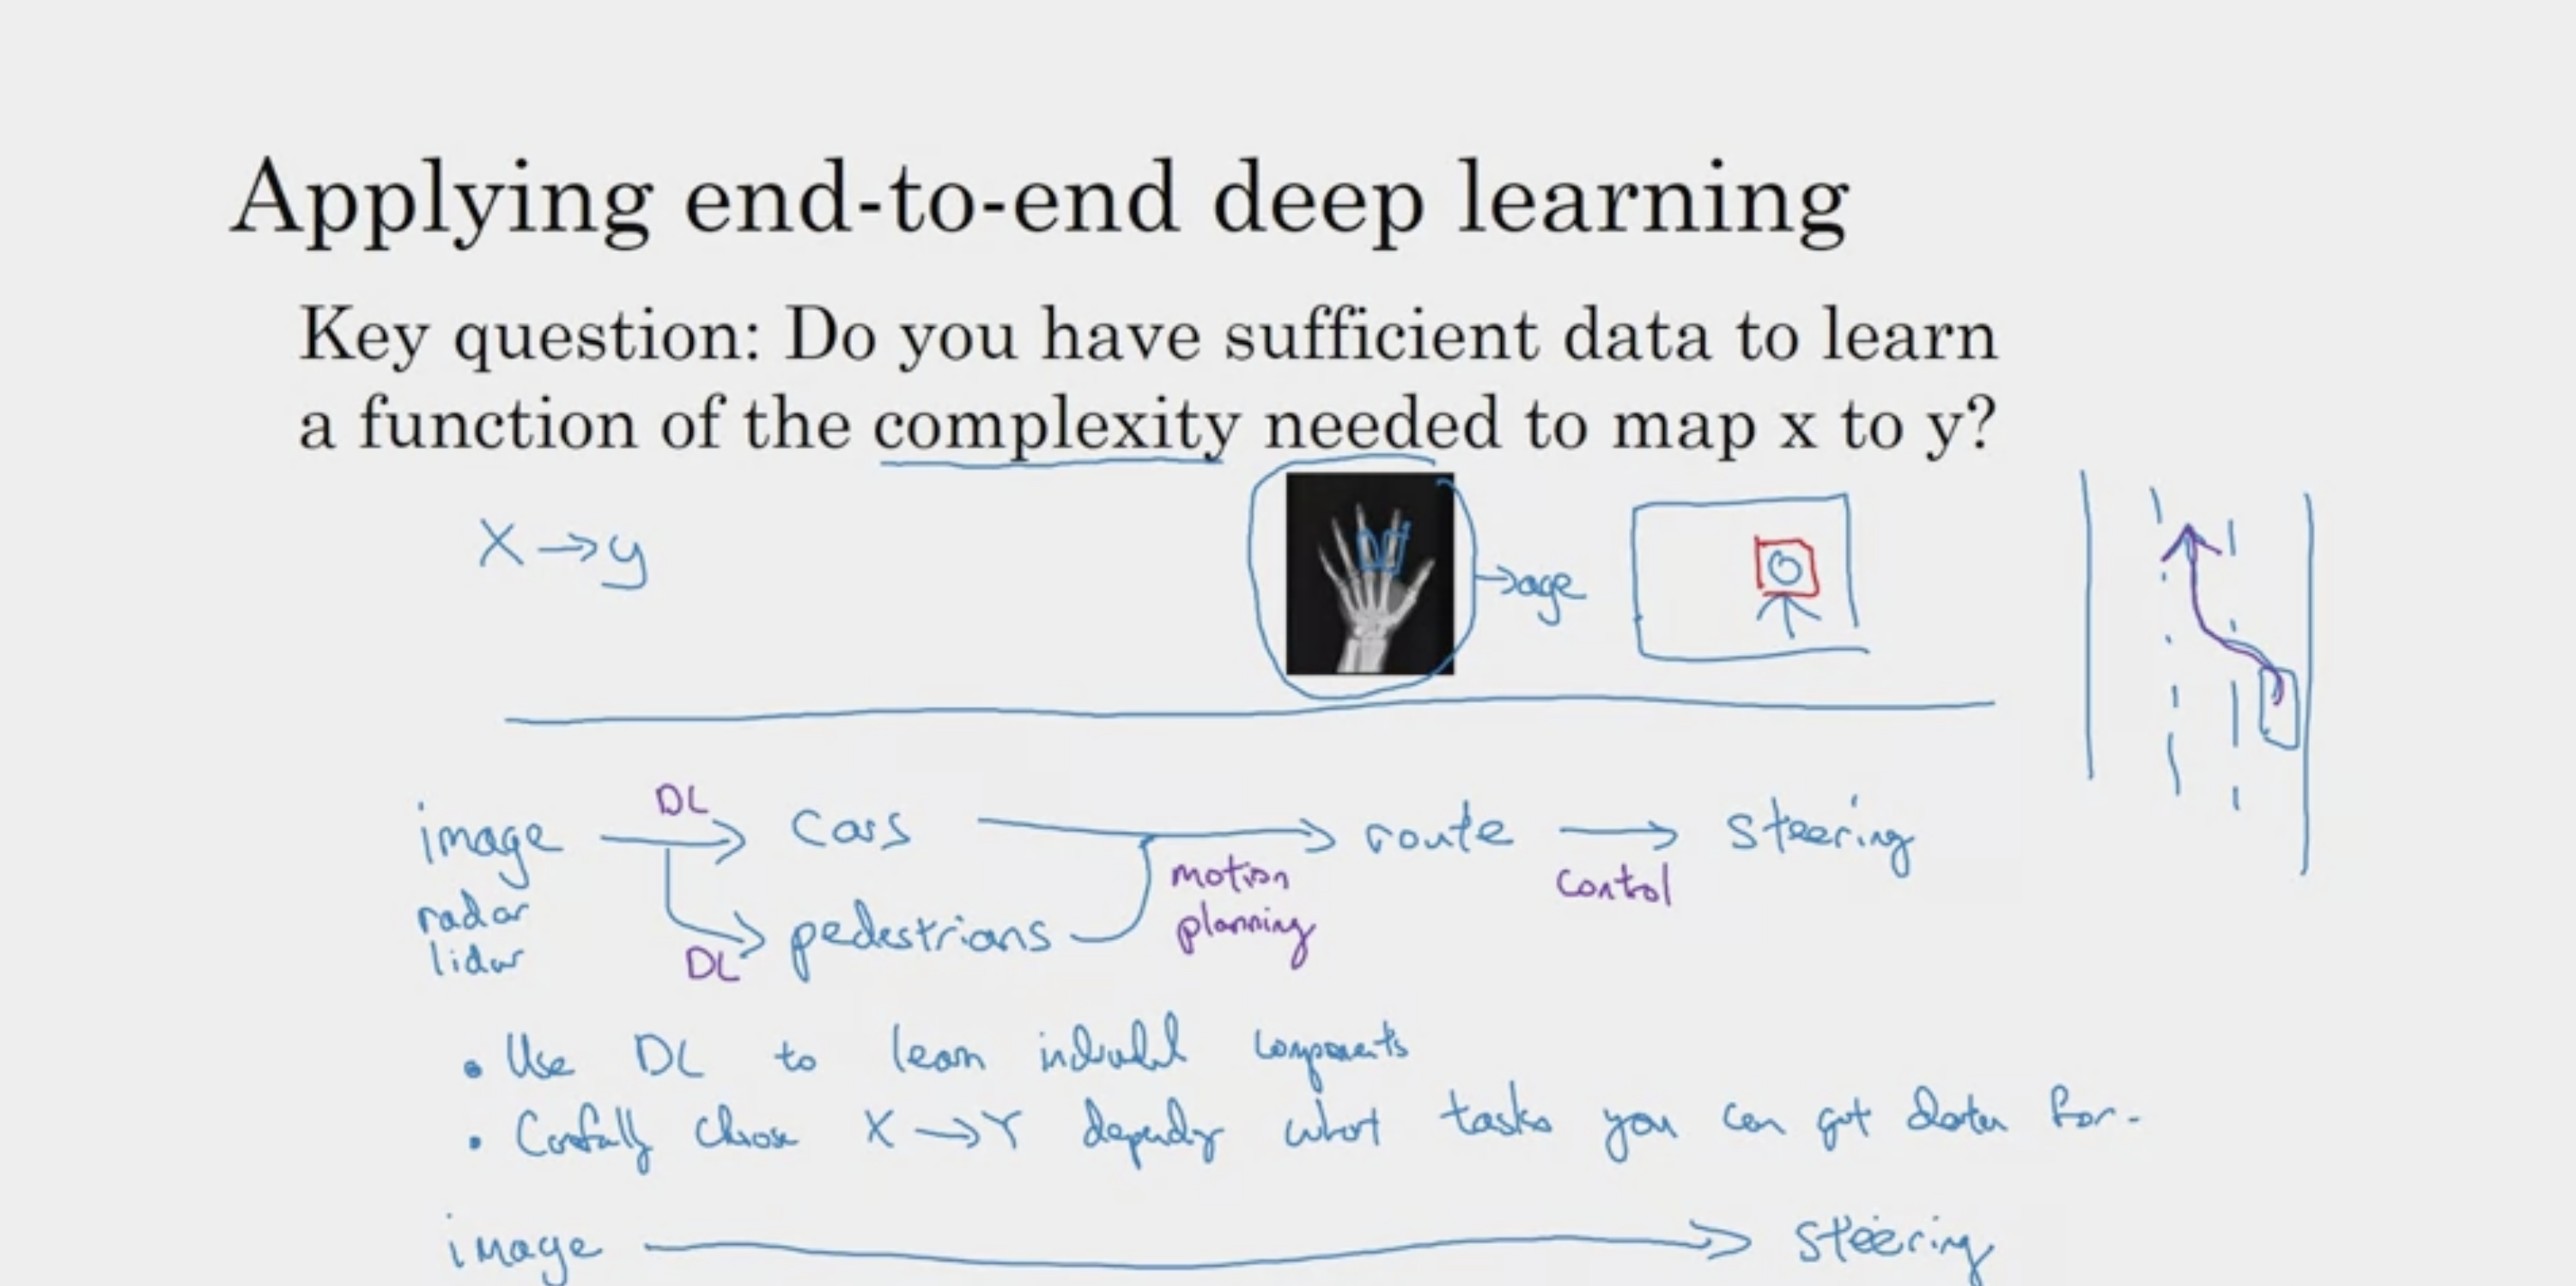 Applying end-to-end deep learning
Key question: Do you have sufficient data to learn
a function of the complexity needed to map x to y?
X → y
→ age
image DL → cars → route → steering
radar
lidar
DL → pedestrians
motion
planning
control
• Use DL to learn individual components
• Carefully choose X → Y depending what tasks you can get data for.
image → steering